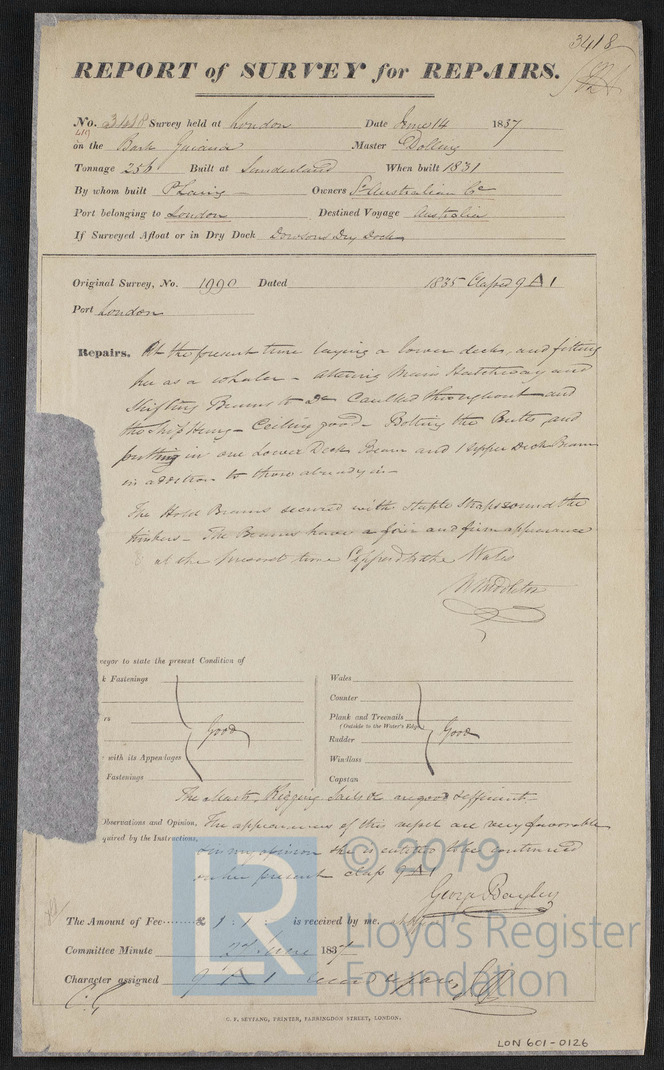 3418
REPORT of SURVEY for REPAIRS.
No. 3418 Survey held at London Date June 14 1837
419
on the Bark Guiana Master Dolling
Tonnage 256 Built at Sunderland When built 1831
By whom built P Laing Owners Sth Australian Co
Port belonging to London Destined Voyage Australia
If Surveyed Afloat or in Dry Dock Dowsons Dry Dock
Original Survey, No. 1990 Dated 1835 Classed 9 A 1
Port London
Repairs. At the present time laying a lower deck and fitting
her as a whaler - altering Main Hatchway and
Shifting Beams to Do Caulked throughout and
the Ship Hemg - Ceiling good - Bolting the Butts and
putting in one Lower Deck Beam and 1 Upper Deck Beam
in addition to those already in
The Hold Beams secured with staple straps round the
timbers - The Beams have a fair and firm appearance
at the present time Copperd to the Wales
W Middleton
veyor to state the present Condition of
k Fastenings
rs
with its Appendages
Fastenings
Good
Wales
Counter
Plank and Treenails
(Outside to the Water's Edge)
Rudder
Windlass
Capstan
Good
The Masts, Rigging Sails &c are good & efficient
Observations and Opinion, The appearances of this vessel are very favorable
quired by the Instructions,
in my opinion she is entitled to be continued
in her present class 9 A 1
George Bayley
The Amount of Fee £ 1 : 1 : is received by me,
Committee Minute 183
Character assigned 9 A 1
C. F. SEYFANG, PRINTER, FARRINGDON STREET, LONDON.
LON 601-0126
© 2019
LR
Lloyd's Register
Foundation